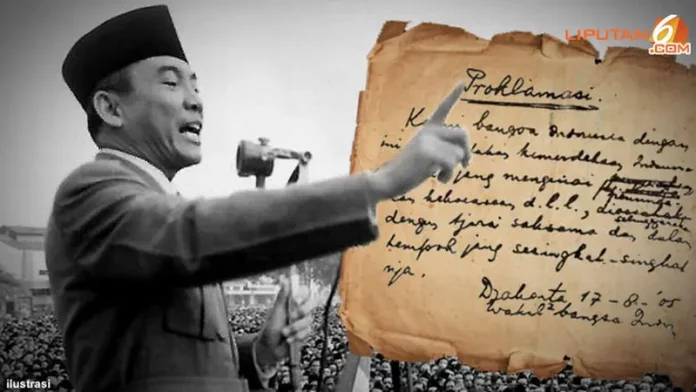 LIPUTAN6
.COM
Proklamasi.
bangsa Indonesia dengan
ini kemerdekaan
jang mengenai
kekoeasaan d.l.l.,
dengan tjara saksama dan dalam
tempoh jang sesingkat-singkat
nja.
Djakarta 17-8-'05
Wakil2 bangsa Indon
ilustrasi